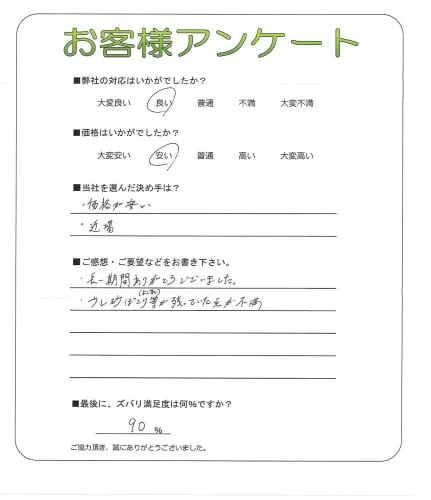 お客様アンケート
■弊社の対応はいかがでしたか？
大変良い 良い 普通 不満 大変不満
■価格はいかがでしたか？
大変安い 安い 普通 高い 大変高い
■当社を選んだ決め手は？
・価格が安い
・近場
■ご感想・ご要望などをお書き下さい。
・長い期間ありがとうございました。
・少し砂ぼこり等が残っていた点が不満
■最後に、ズバリ満足度は何％ですか？
90 ％
ご協力頂き、誠にありがとうございました。